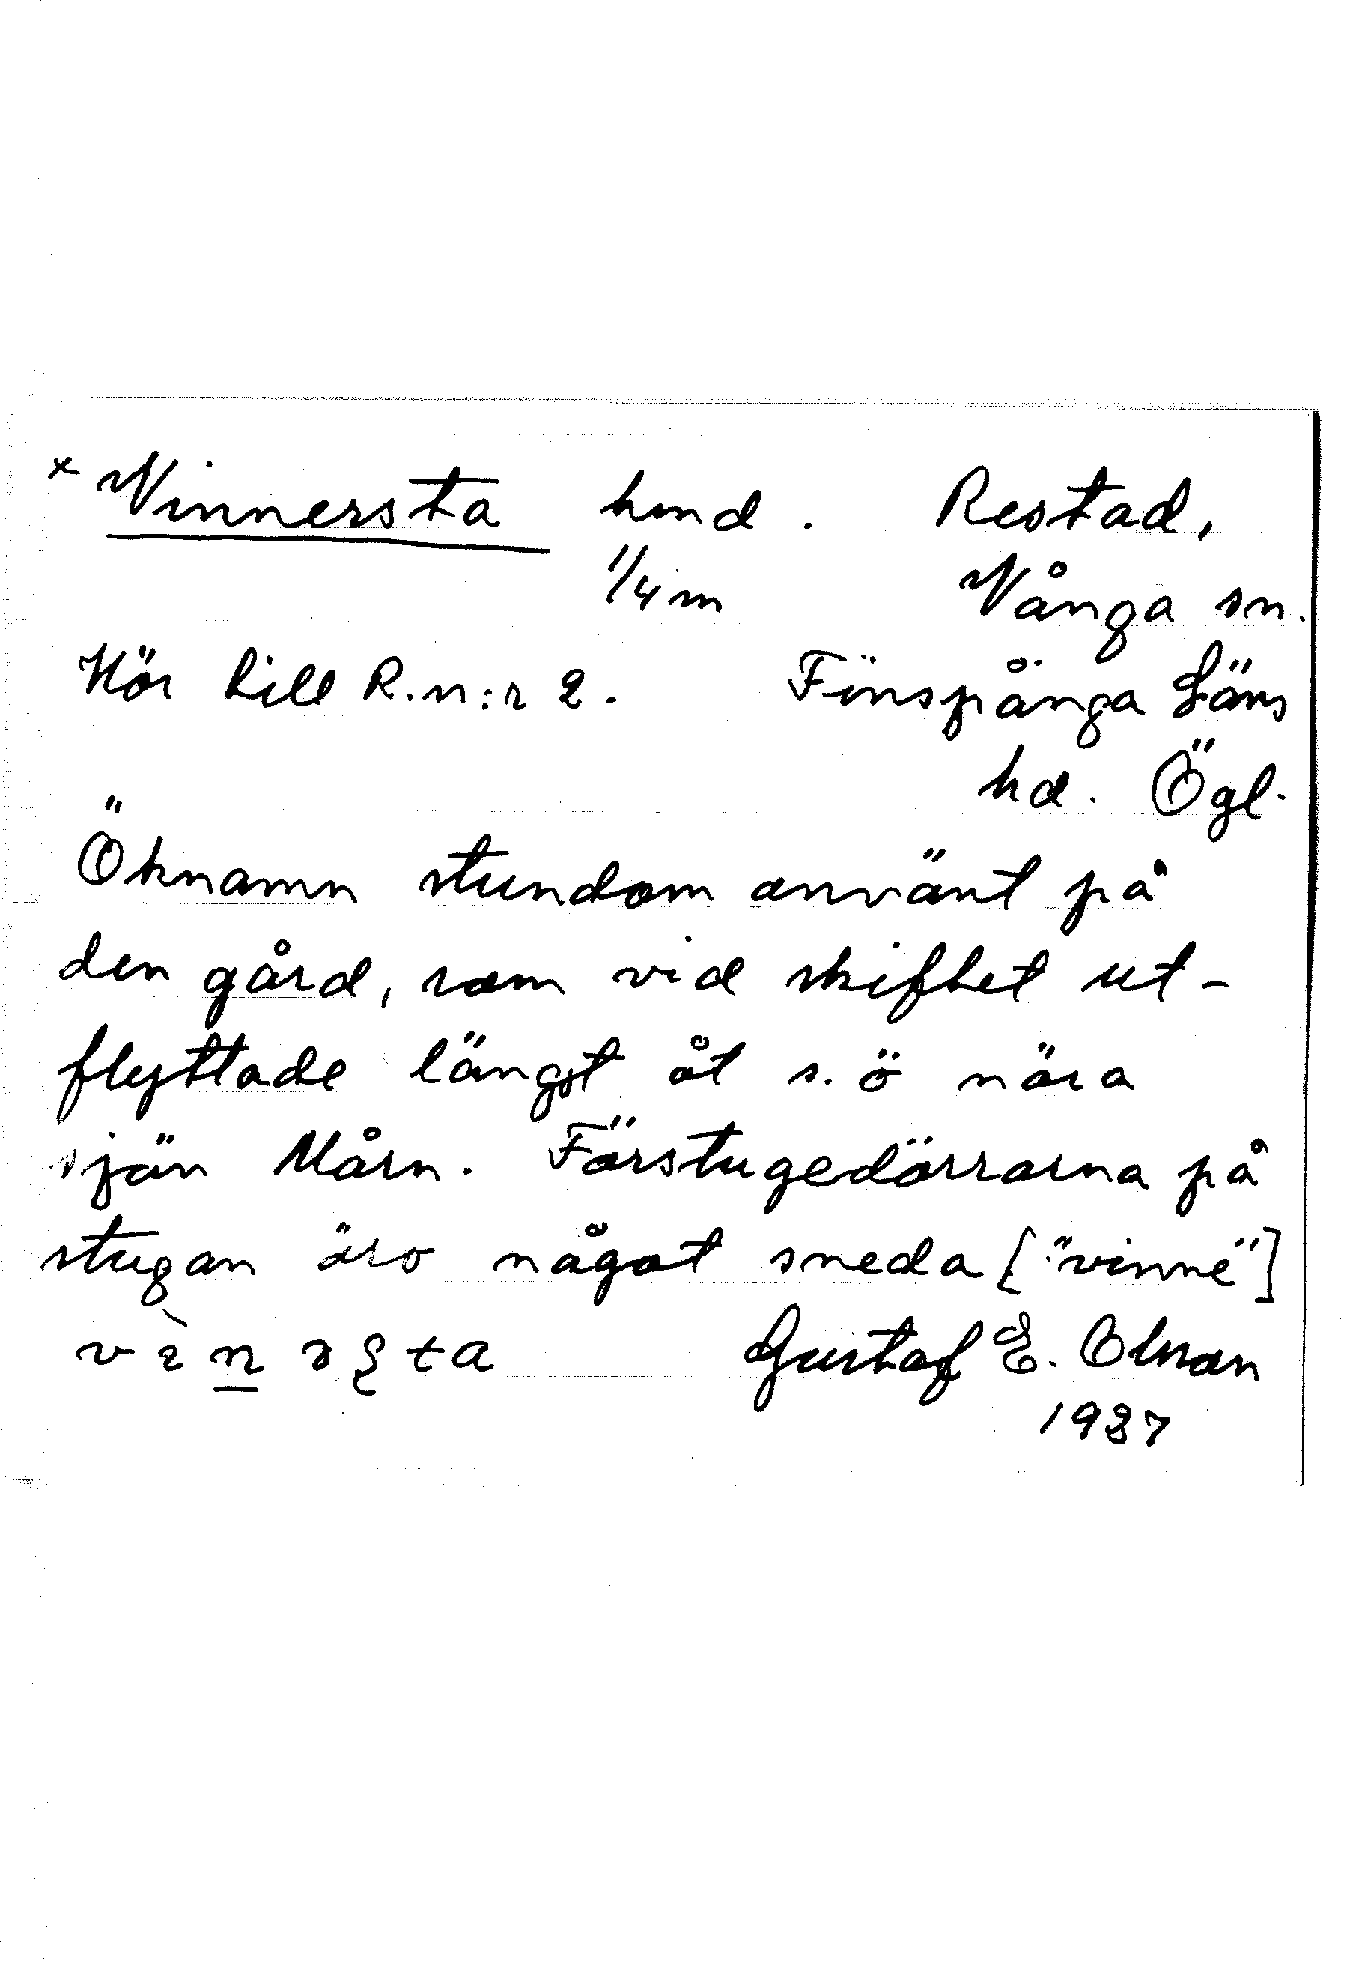 × Vinnersta hmd. Restad,
1/4 m Vånga sn.
Hör till R. n:r 2. Finspånga Läns
hd. Ögl.
Öknamn stundom använt på
den gård, som vid skiftet ut-
flyttade längst åt s. ö nära
sjön Mårn. Förstugedörrarna på
stugan äro något sneda ["vinne"]
Gustaf E. Olsson
1937